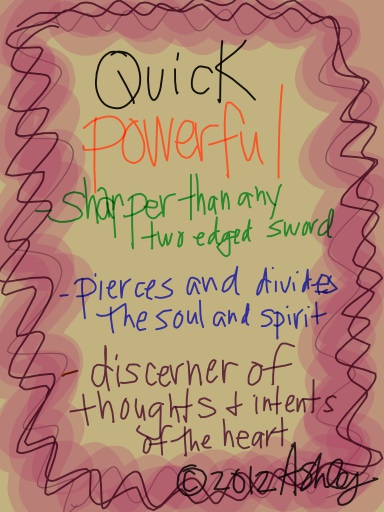 Quick
Powerful
- sharper than any
two edged sword
- pierces and divides
the soul and spirit
- discerner of
thoughts & intents
of the heart
©2012 Ashley